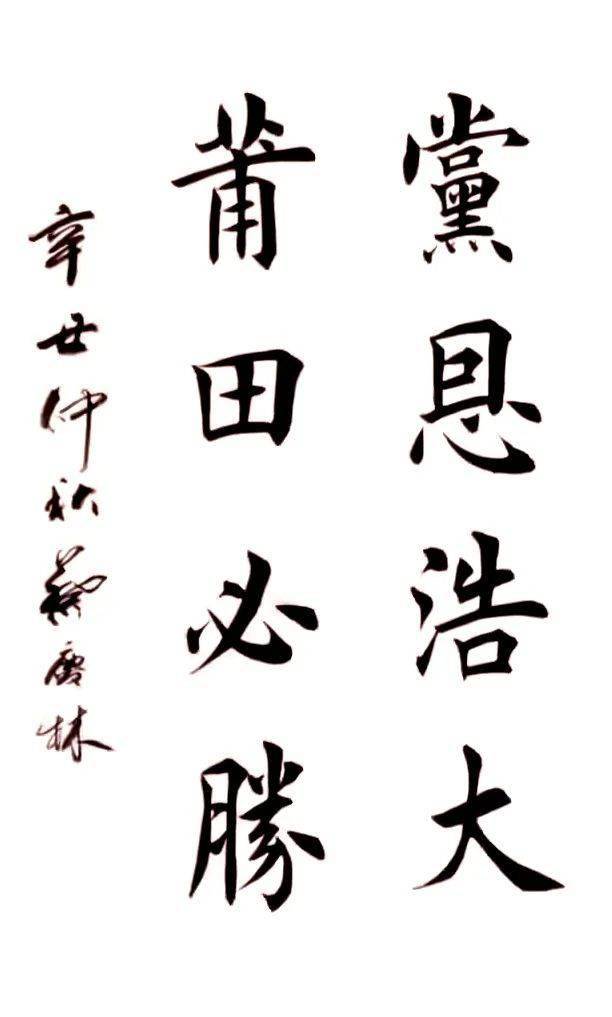 黨恩浩大
莆田必勝
辛丑仲秋蘇唐林